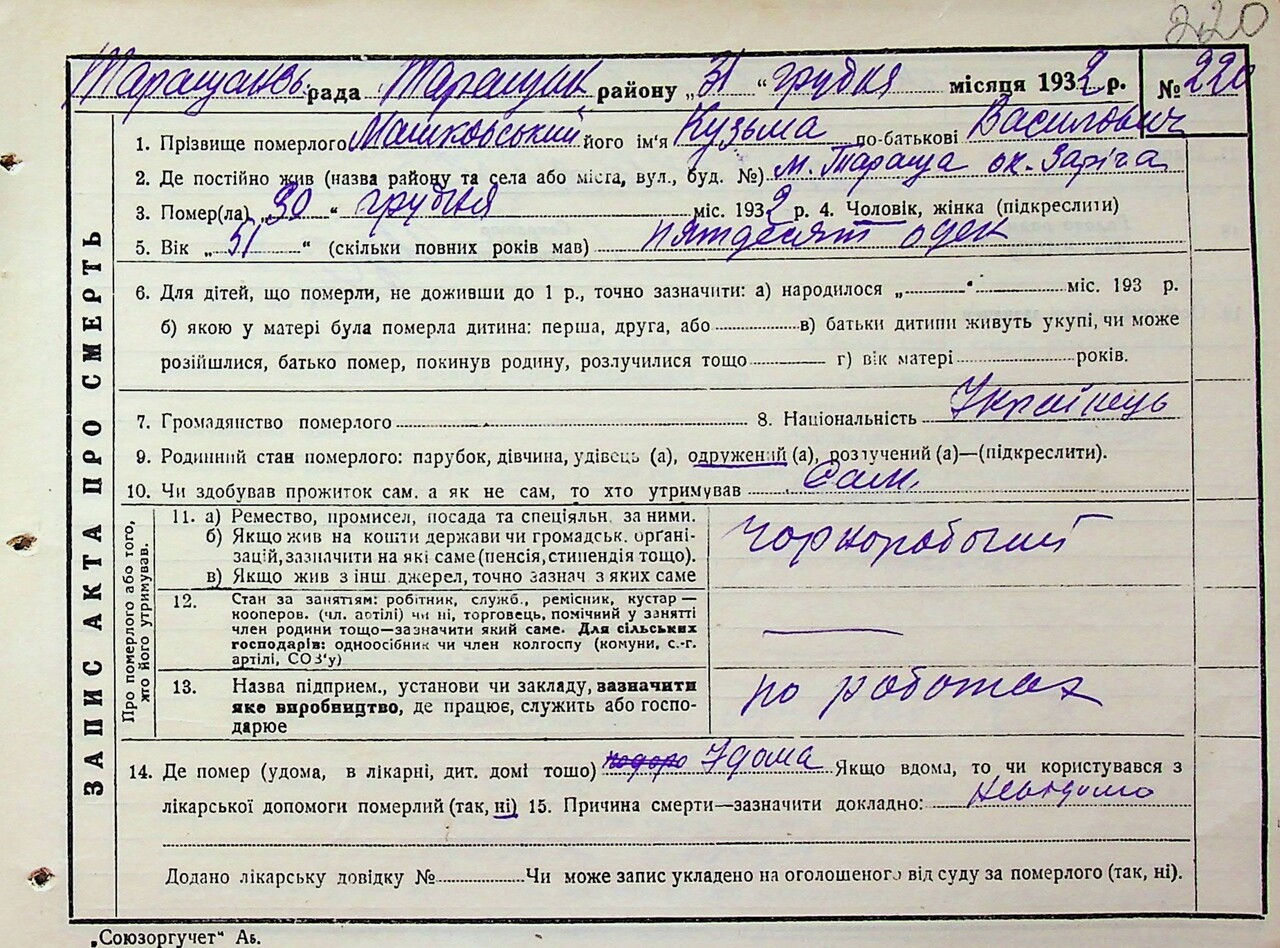 220
Таращансь. рада Таращанськ району „31“ грудня місяця 1932 р. № 220
ЗАПИС АКТА ПРО СМЕРТЬ
1. Прізвище померлого Машковський його ім'я Кузьма по-батькові Василович
2. Де постійно жив (назва району та села або міста, вул., буд. №) м. Тараща ок. Заріча
3. Помер(ла) „30“ грудня міс. 1932 р. 4. Чоловік, жінка (підкреслити)
5. Вік „51“ (скільки повних років мав) пятдесят оден
6. Для дітей, що померли, не доживши до 1 р., точно зазначити: а) народилося „ “ міс. 193 р.
б) якою у матері була померла дитина: перша, друга, або в) батьки дитини живуть укупі, чи може
розійшлися, батько помер, покинув родину, розлучилися тощо г) вік матері років.
7. Громадянство померлого 8. Національність Українець
9. Родинний стан померлого: парубок, дівчина, удівець (а), одружений (а), розлучений (а)—(підкреслити).
10. Чи здобував прожиток сам, а як не сам, то хто утримував Сам.
Про померлого або того, хто його утримував.
11. а) Ремество, промисел, посада та спеціяльн. за ними.
б) Якщо жив на кошти держави чи громадськ. орґані-
зацій, зазначити на які саме (пенсія, стипендія тощо).
в) Якщо жив з інш. джерел, точно зазнач. з яких саме
Чорноробочий
12. Стан за заняттям: робітник, служб., ремісник, кустар—
кооперов. (чл. артілі) чи ні, торговець, помічний у занятті
член родини тощо—зазначити який саме. Для сільських
господарів: одноосібник чи член колгоспу (комуни, с.-г.
артілі, СОЗ'у)
13. Назва підприєм., установи чи закладу, зазначити
яке виробництво, де працює, служить або госпо-
дарює
по роботах
14. Де помер (удома, в лікарні, дит. домі тощо) Удома Якщо вдома, то чи користувався з
лікарської допомоги померлий (так, ні) 15. Причина смерти—зазначити докладно: невидомо
Додано лікарську довідку № Чи може запис укладено на оголошеного від суду за померлого (так, ні).
„Союзоргучет“ Аь.